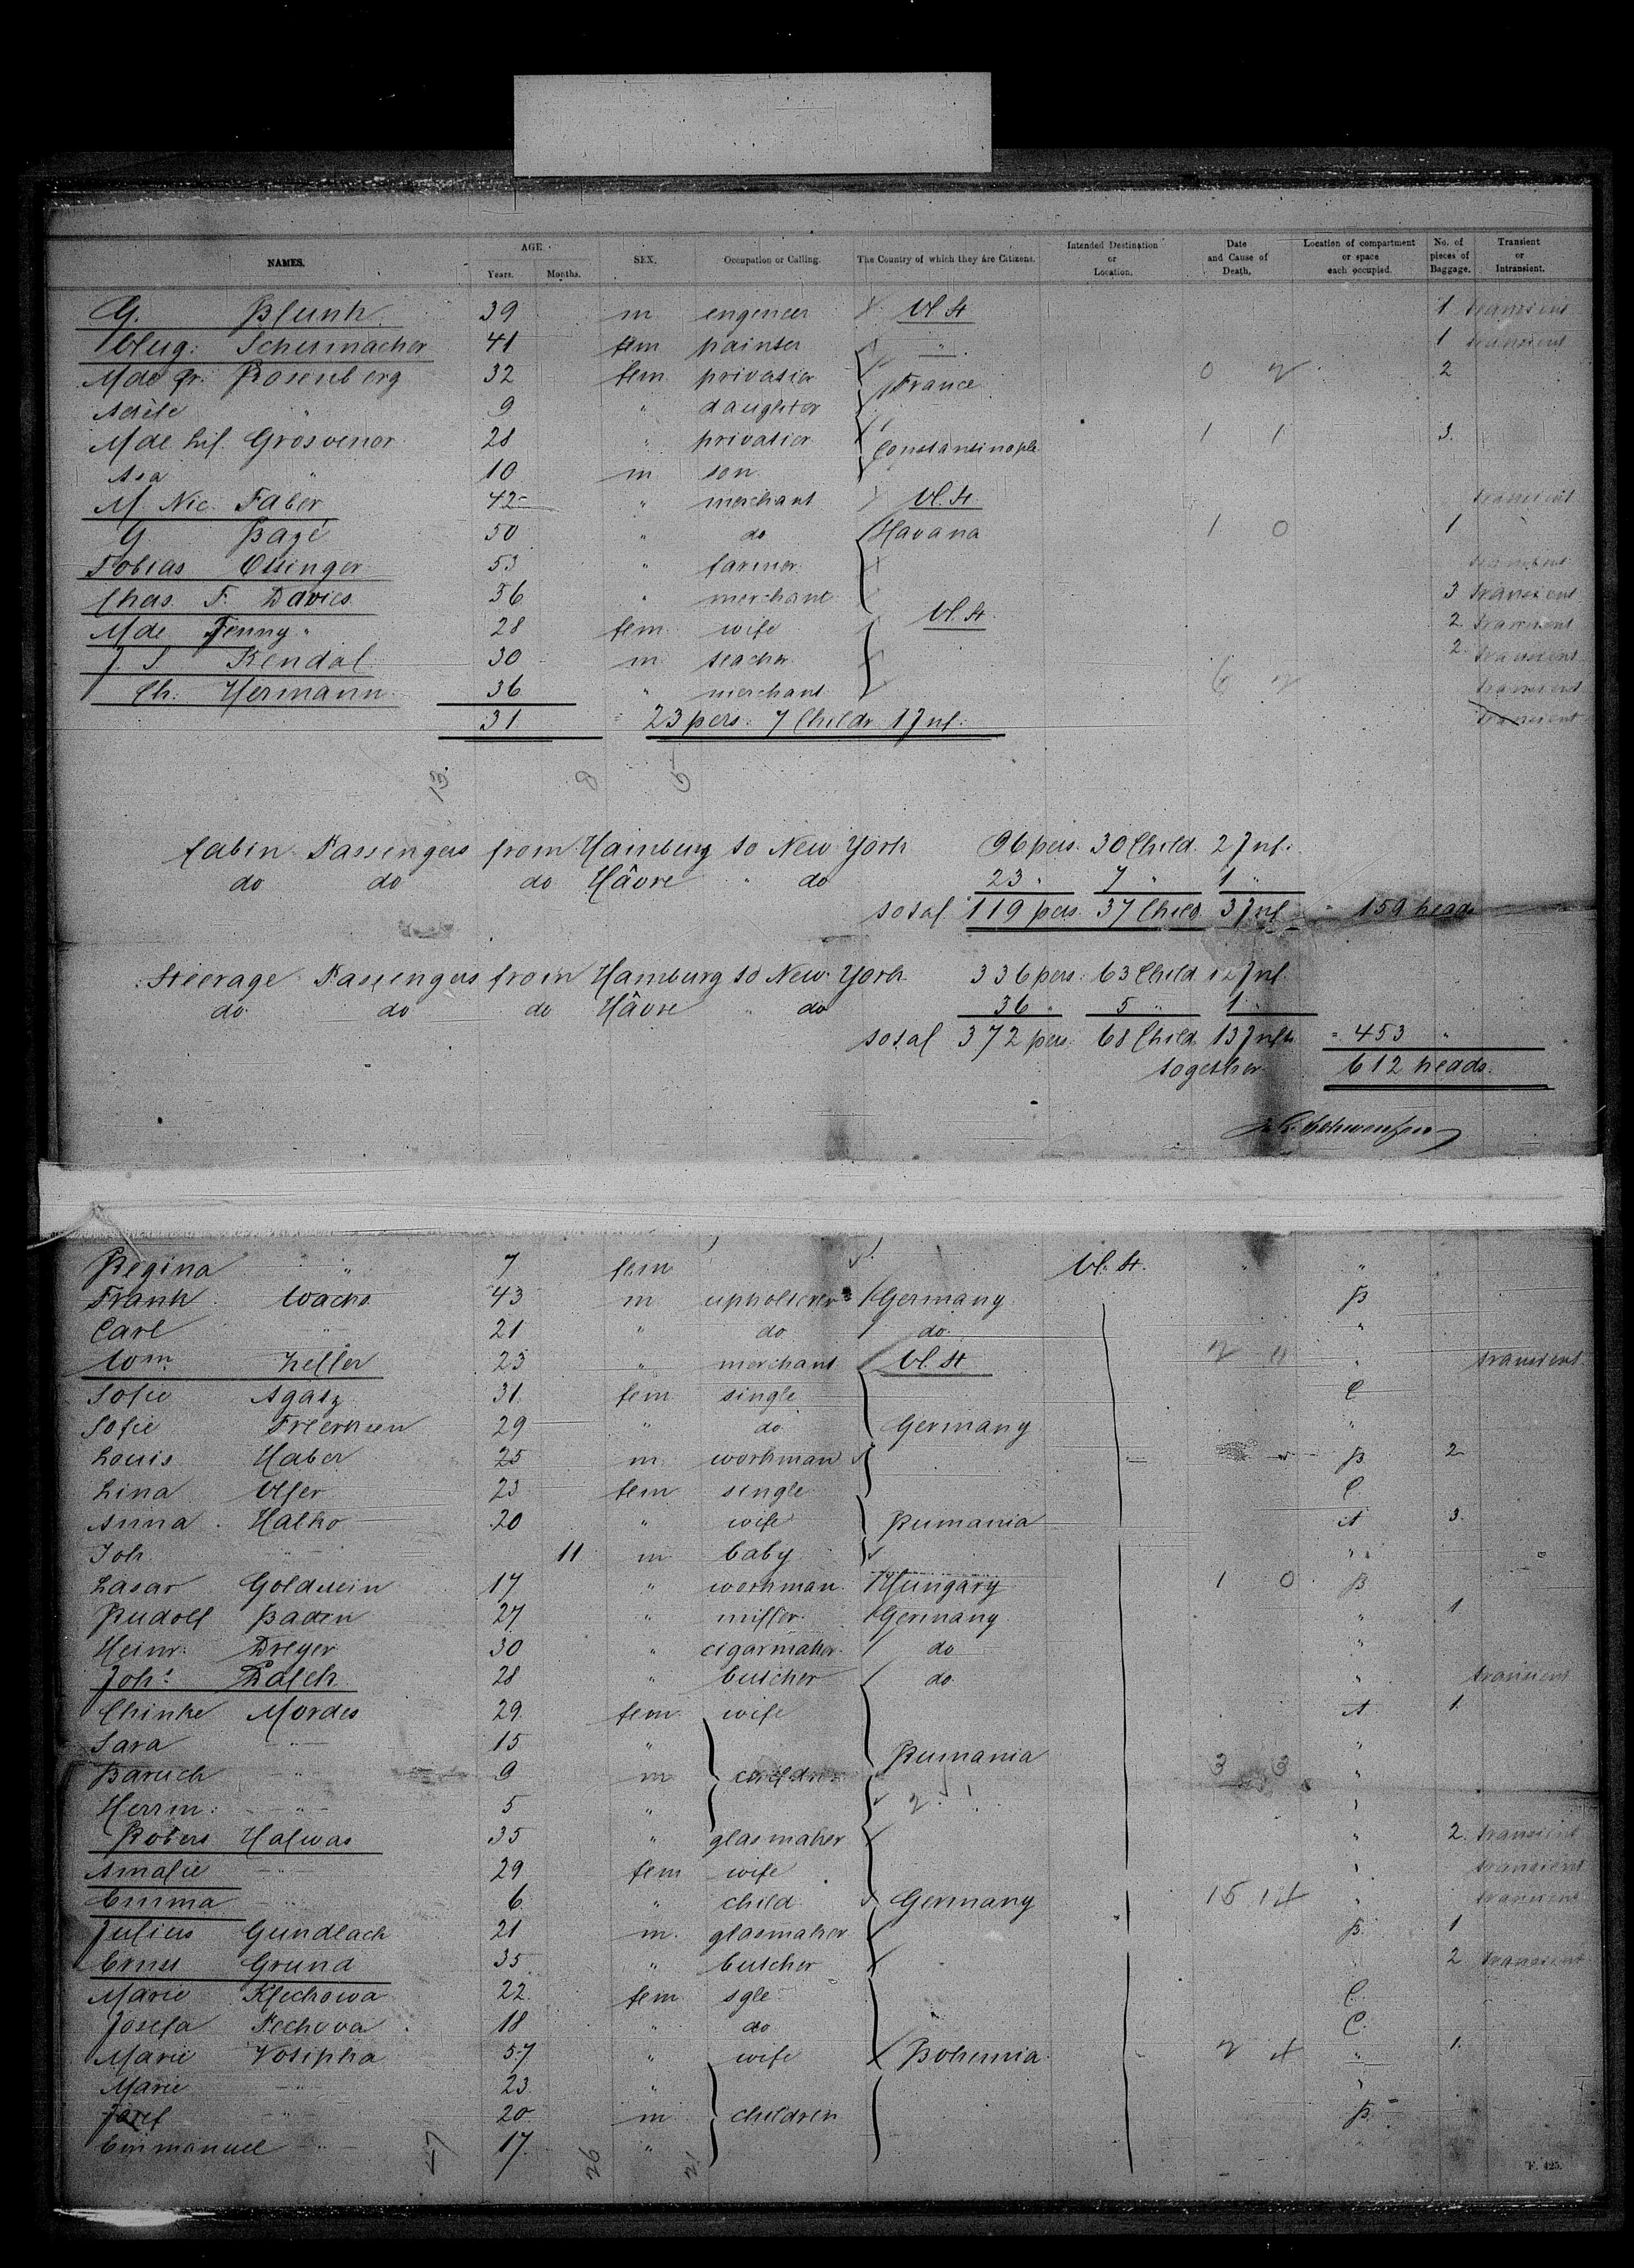 NAMES. AGE. Years. Months. SEX. Occupation or Calling. The Country of which they are Citizens. Intended Destination or Location. Date and Cause of Death. Location of compartment or space each occupied. No. of pieces of Baggage. Transient or Intransient.
G. Blunk 39 m engeneer U. St 1 transient
Aug: Schumacher 41 fem painter " 1 transient
Mde Fr. Rosenberg 32 fem privatier France 0 2 2
Adèle " 9 " daughter
Mde Grosvenor 28 " privatier Constantinople 1 1 3.
Asa " 10 m son
M. Nic. Faber 42 " merchant U. St. transient
G Bazé 50 " do Havana 1 0 1
Tobias 53 " farmer transient
Chas. F. Davies 36 " merchant U. St. 3 transient
Mde Jenny " 28 fem wife 2 transient
J. S. Kendal 30 m teacher 2 transient
Ch. Hermann 36 " merchant 6 2 transient
31 = 23 pers. 7 Childr 1 Inf. transient
13 8 5
Cabin Passengers from Hamburg to New York 96 pers. 30 Child. 2 Inf.
do do do Hâvre " do 23 " 7 " 1 "
total 119 pers. 37 Child 3 Inf = 159 heads
Steerage Passengers from Hamburg to New York 336 pers. 63 Child 12 Inf.
do do do Hâvre " do 36 " 5 " 1 "
total 372 pers. 68 Child 13 Infts = 453 "
together 612 heads.
Regina " 7 fem U. St. " "
Frank Wacks 43 m upholsterer Germany B
Carl " 21 " do do "
Wm Zeller 23 " merchant U. St 2 0 " transient
Sofie Agatz 31 fem single C
Sofie Freerksen 29 " do Germany "
Louis Haber 25 m workman B 2
Lina Ulfer 23 fem single C
Anna Halko 20 " wife Rumania A 3.
Joh. " 11 m baby "
Lasar Goldstein 17 " workman Hungary 1 0 B
Rudolf Baden 27 " miller Germany " 1
Heinr. Dreyer 30 " cigarmaker do "
Johs. 28 " butcher do " transient
Chinke Mordes 29 fem wife A 1
Sara " 15 " Rumania "
Baruch " 9 m children 3 3 "
Herrm. " 5 " "
Robert Halwas 35 " glasmaker " 2. transient
Amalie " 29 fem wife " transient
Emma " 6 " child Germany 15 14 " transient
Julius Gundlach 21 m. glasmaker B. 1
Ernst Grund 35 " butcher 2 transient
Marie Klechowa 22 fem sgle C.
Josefa Pechova 18 " do C.
Marie Votipka 57 " wife Bohemia 2 4 " 1.
Marie " 23 " "
Josef " 20 m children B
Emmanuel " 17. "
47 26 21
F. 425.